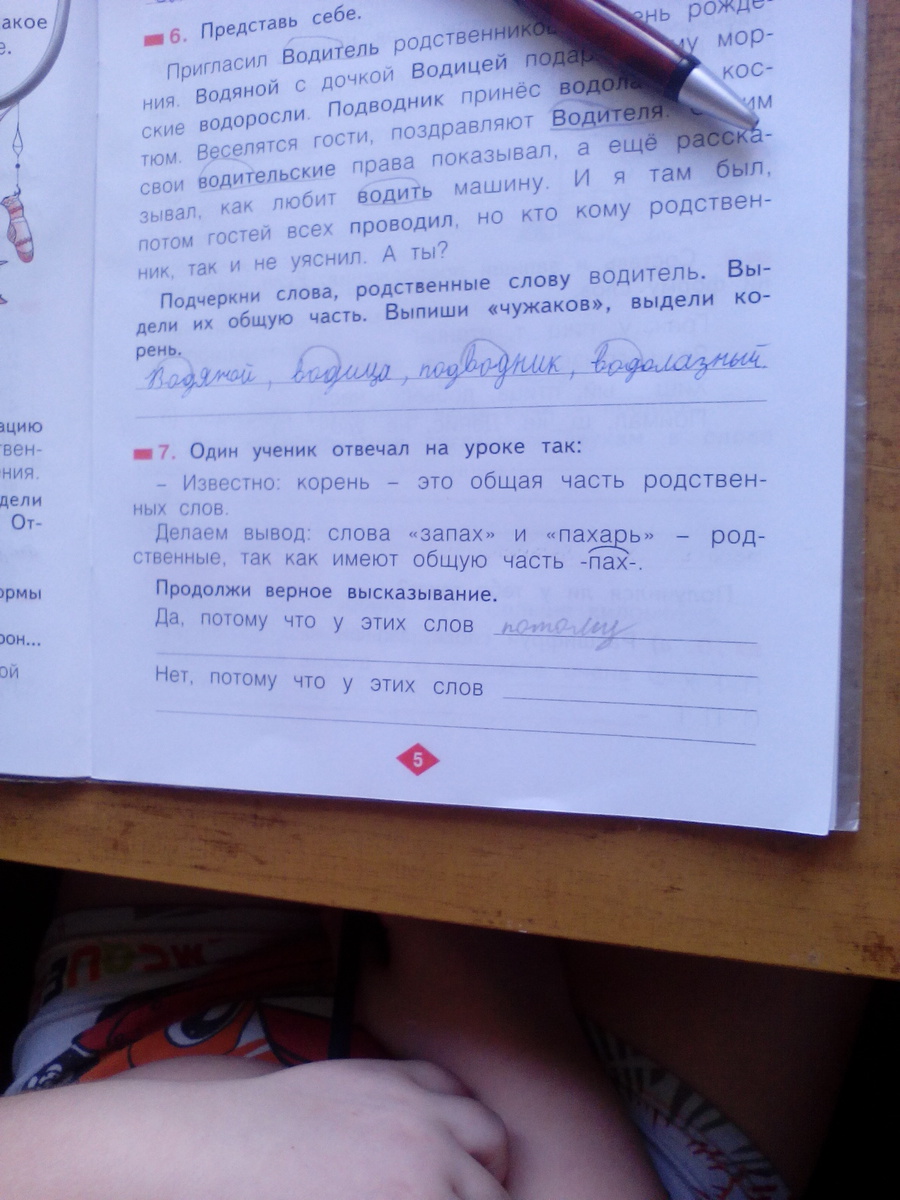 акое
е.
ацию
твен-
ния.
дели
От-
ормы
рон...
ой
6. Представь себе.
Пригласил Водитель родственников ень рожде-
ния. Водяной с дочкой Водицей пода му мор-
ские водоросли. Подводник принёс водола кос-
тюм. Веселятся гости, поздравляют Водителя. им
свои водительские права показывал, а ещё расска-
зывал, как любит водить машину. И я там был,
потом гостей всех проводил, но кто кому родствен-
ник, так и не уяснил. А ты?
Подчеркни слова, родственные слову водитель. Вы-
дели их общую часть. Выпиши «чужаков», выдели ко-
рень.
Водяной, водица, подводник, водолазный.
7. Один ученик отвечал на уроке так:
– Известно: корень – это общая часть родствен-
ных слов.
Делаем вывод: слова «запах» и «пахарь» – род-
ственные, так как имеют общую часть -пах-.
Продолжи верное высказывание.
Да, потому что у этих слов потому
Нет, потому что у этих слов
5